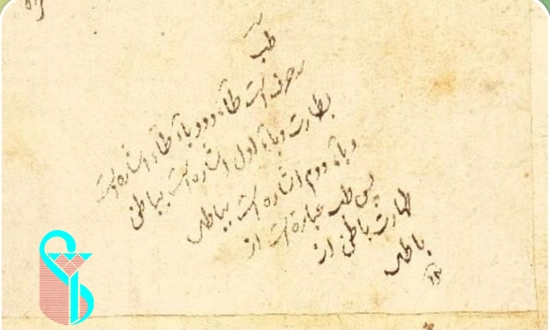 طب
سه حرف است طاء و دو باء طاء اشاره است
بطهارت و باء اول اشاره است بباطن
و باء دوم اشاره است بباطل
پس طب عبارة است از
طهارت باطن از
باطل